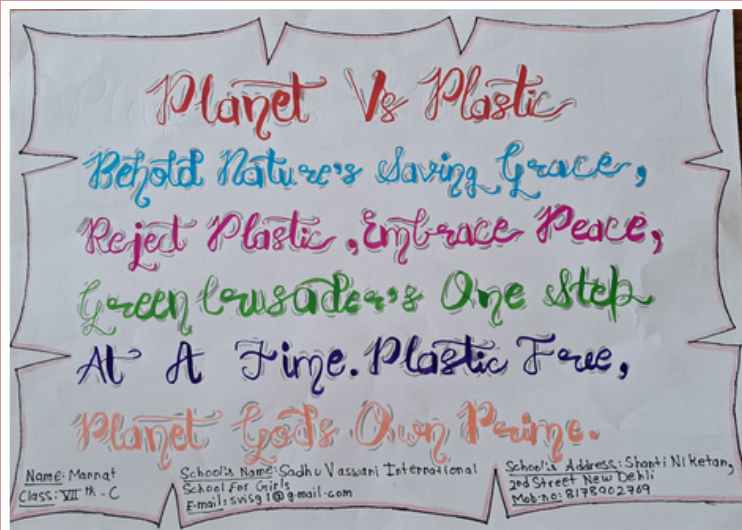 Planet Vs Plastic
Behold Nature's Saving Grace,
Reject Plastic, Embrace Peace,
Green Crusader's One Step
At A Time. Plastic Free,
Planet God's Own Prime.
Name: Mannat
Class: VII th - C
School's Name: Sadhu Vaswani International
School For Girls
E-mail: svisg1@g-mail.com
School's Address: Shanti Niketan,
2nd Street New Dehli
Mob.no: 8178902769